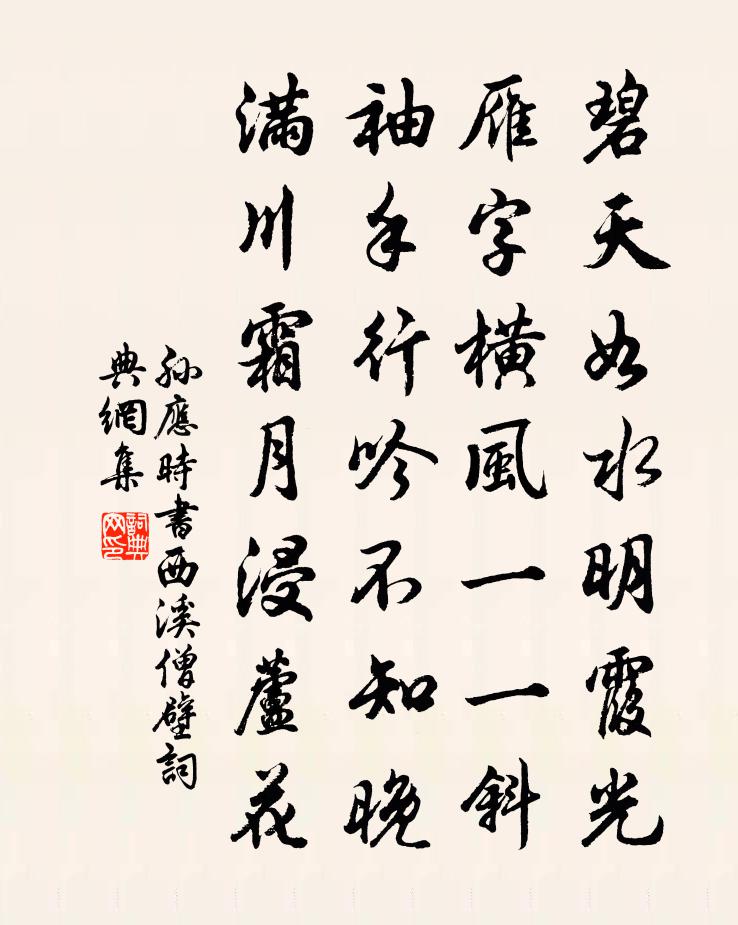 碧天如水明霞光
雁字橫風一一斜
袖手行吟不知晚
滿川霜月浸蘆花
孫應時書西溪僧壁詞
典網集
詞典網印